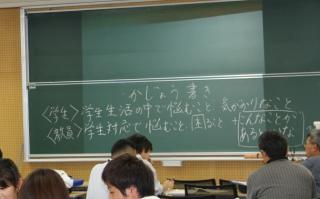 かじょう書き
〈学生〉学生生活の中で悩むこと、気がかりなこと
〈教員〉学生対応で悩むこと、困ること+こんなことが
あると